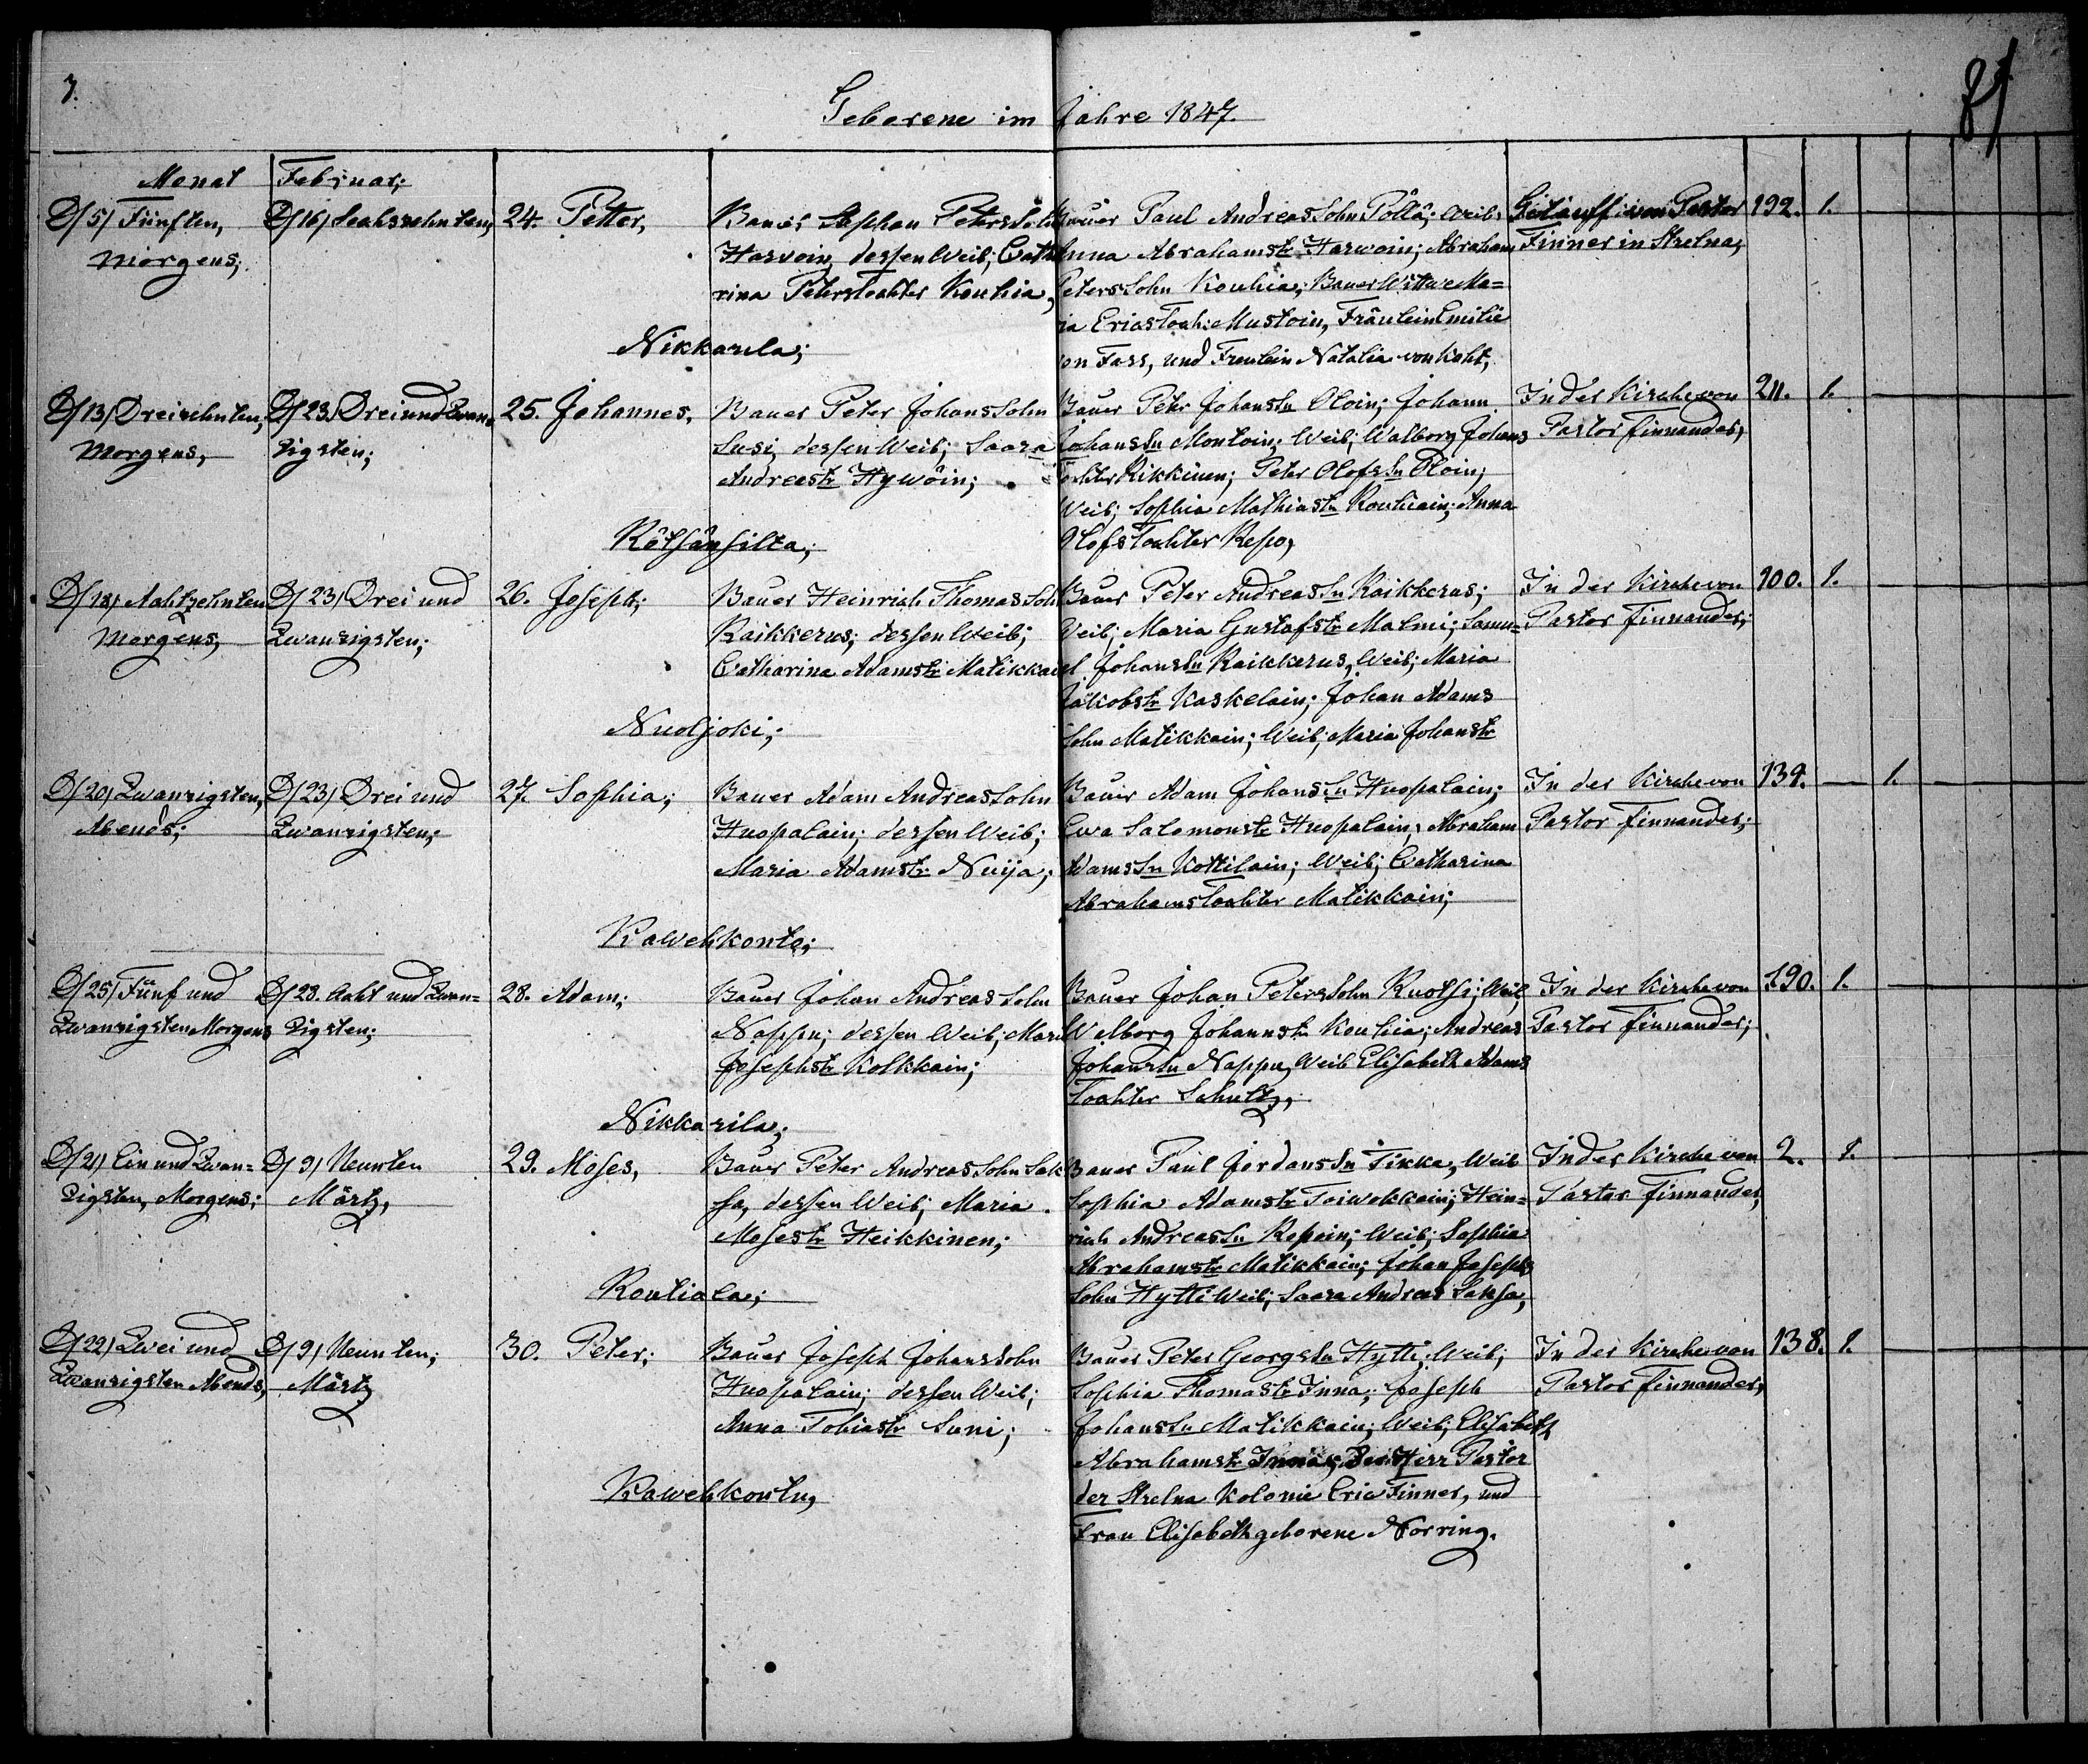 7.
81
Geborene im Jahre 1847.
Monat Februar;
D/5/ Fünften,
Morgens;
D/16/ Sechszehnten,
24. Petter,
Bauer Stephan Peterssohn
Harvoin, dessen Weib, Catha
rina Peterstochter Kouhia,
Nikkarila;
Bauer Paul Andreas Sohn Pöllä; Weib,
Anna Abrahamstr Harwoin; Abraham
Peters Sohn Kouhia; Bauer Wittwe Ma=
ia Erics Toch: Mustoin, Fräulein Emilie
on Fass, und Freulein Natalia von Koht,
Getauft von Pastor
Finner in Strelna,
192. 1.
D/13/ Dreizehnten,
Morgens,
D/23. Drei und Zwan=
zigsten;
25. Johannes,
Bauer Peter Johanssohn
Susi, dessen Weib; Saara
Andreastr Hywöin;
Rötsänsilta;
Bauer Petr Johanssn Oloin; Johann
Johanssn Montoin; Weib; Walborg Johans
Tochter Rikkinen; Peter Olofssn Oloin;
Weib; Sophia Mathiastr Kouhiain; Anna
Olofs Tochter Repo,
In der Kirche von
Pastor Finnander,
211. 1.
D/18/ Achtzehnten
Morgens,
D/23/ Drei und
Zwanzigsten;
26. Joseph;
Bauer Heinrich Thomas Sohn
Raikkerus; dessen Weib;
Catharina Adamstr Matikkai
Nuoljoki;
Bauer Peter Andreassn Raikkerus;
Weib; Maria Gustafstr Malmi; Samu=
el Johanssn Raikkerus, Weib; Maria
Jakobstr Kaskelain; Johan Adams
Sohn Matikkain; Weib, Maria Johanstr
In der Kirche von
Pastor Finnander;
100. 1.
D/20/ Zwanzigsten,
Abends;
D/23/ Drei und
Zwanzigsten;
27. Sophia;
Bauer Adam Andreas Sohn
Huopalain; dessen Weib;
Maria Adamstr Nuija;
Kawehkonto;
Bauer Adam Johanssn Huopalain;
Ewa Salomonstr Huopalain; Abraham
Adamssn Kottilain; Weib; Catharina
Abrahams Tochter Matikkain;
In der Kirche von
Pastor Finnander;
139. 1.
D/25/ Fünf und
Zwanzigsten Morgens
D/28. Acht und Zwan=
zigsten;
28. Adam;
Bauer Johan Andreas Sohn
Nappu; dessen Weib, Maria
Josephstr Kolkkain;
Nikkarila;
Bauer Johan Peterssohn Ruotsi; Weib,
Walborg Johannstr Kouhia; Andreas
Johanssn Nappu, Weib Elisabeth Adams
Tochter Schultz,
In der Kirche von
Pastor Finnander;
190. 1.
D/21/ Ein und Zwan=
zigsten, Morgens;
D/9/ Neunten
Märtz,
29. Moses,
Bauer Peter Andreas Sohn Sak
sa, dessen Weib, Maria
Mosestr Heikkinen;
Routiala;
Bauer Paul Jordanssn Tikka, Weib
Sophia Adamstr Toiwokkain; Hein=
rich Andreassn Repoin; Weib; Sophia
Abrahamstr Matikkain; Johan Josephs
Sohn Hytti Weib; Saara Andreas Saksa,
In der Kirche von
Pastor Finnander,
2. 1.
D/22/ Zwei und
Zwanzigsten Abends,
D/9/ Neunten;
Märtz
30. Peter;
Bauer Joseph Johanssohn
Huopalain; dessen Weib;
Anna Tobiastr Suni;
Kawehkontu,
Bauer Peter Georgssn Hytti; Weib;
Sophia Thomastr Inna; Joseph
Johanssn Matikkain; Weib; Elisabeth
Abrahamstr Herr Pastor
der Strelna Kolonie Eric Finner, und
Frau Elisabeth geborene Norring.
In der Kirche von
Pastor Finnander,
138. 1.